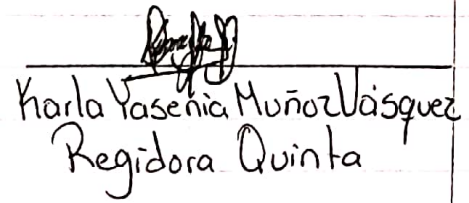 Karla Yasenia Muñoz Vásquez
Regidora Quinta